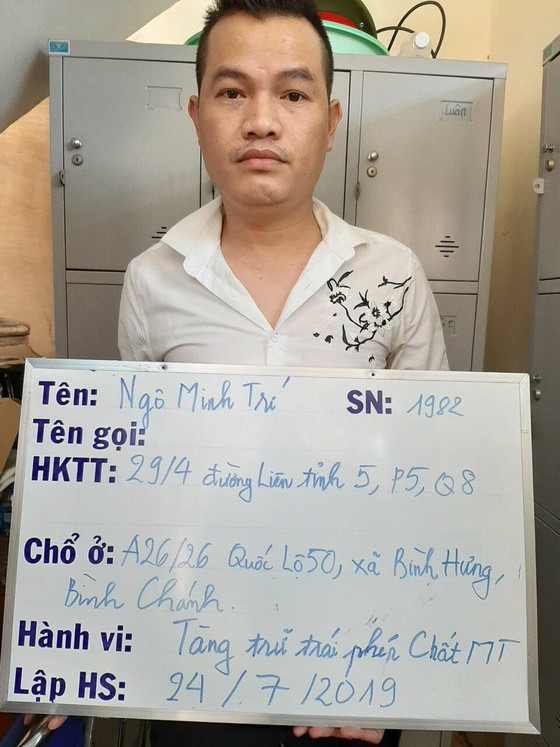 Luân
Tên: Ngô Minh Trí SN: 1982
Tên gọi:
HKTT: 29/4 đường Liên tỉnh 5, P5, Q8
Chổ ở: A26/26 Quốc Lộ 50, xã Bình Hưng,
Bình Chánh.
Hành vi: Tàng trữ trái phép Chất MT
Lập HS: 24/7/2019